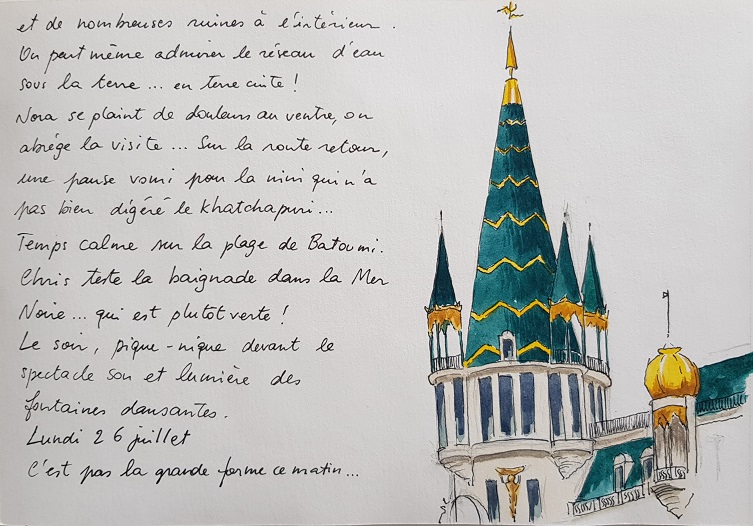 et de nombreuses ruines à l'intérieur.
On peut même admirer le réseau d'eau
sous la terre... en terre cuite !
Nora se plaint de douleurs au ventre, on
abrège la visite... Sur la route retour,
une pause vomi pour la nini qui n'a
pas bien digéré le khatchapuri...
Temps calme sur la plage de Batoumi.
Chris teste la baignade dans la Mer
Noire... qui est plutôt verte !
Le soir, pique-nique devant le
spectacle son et lumière des
fontaines dansantes.
Lundi 26 juillet
C'est pas la grande forme ce matin...